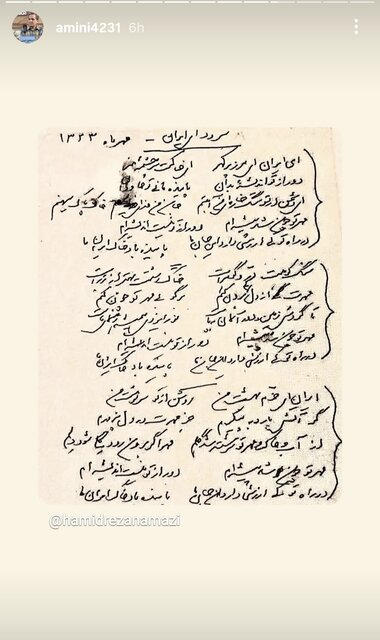 amini4231 6h
سرود ای ایران – مهرماه ۱۳۲۳
ای ایران ای مرز پر گهر ای خاکت سرچشمه هنر
دور از تو اندیشه بدان پاینده مانی تو جاودان
ای دشمن ار تو سنگ خاره‌ای من آهنم جان من فدای خاک پاک میهنم
مهر تو چون شد پیشه‌ام دور از تو نیست اندیشه‌ام
در راه تو کی ارزشی دارد این جان ما پاینده باد خاک ایران ما
سنگ کوهت در و گوهر است خاک دشتت بهتر از زر است
مهرت از دل کی برون کنم برگو بی مهر تو چون کنم
تا گردش زمین و دور آسمان بپاست نور ایزدی همیشه رهنمای ماست
مهر تو چون شد پیشه‌ام دور از تو نیست اندیشه‌ام
در راه تو کی ارزشی دارد این جان ما پاینده باد خاک ایران ما
ایران ای خرم بهشت من روشن از تو سرنوشت من
گر آتش بارد به پیکرم جز مهرت در دل نپرورم
از آب و خاک و مهر تو سرشته شد گلم مهر اگر برون رود گلی شود دلم
مهر تو چون شد پیشه‌ام دور از تو نیست اندیشه‌ام
در راه تو کی ارزشی دارد این جان ما پاینده باد خاک ایران ما
@hamidrezanamazi